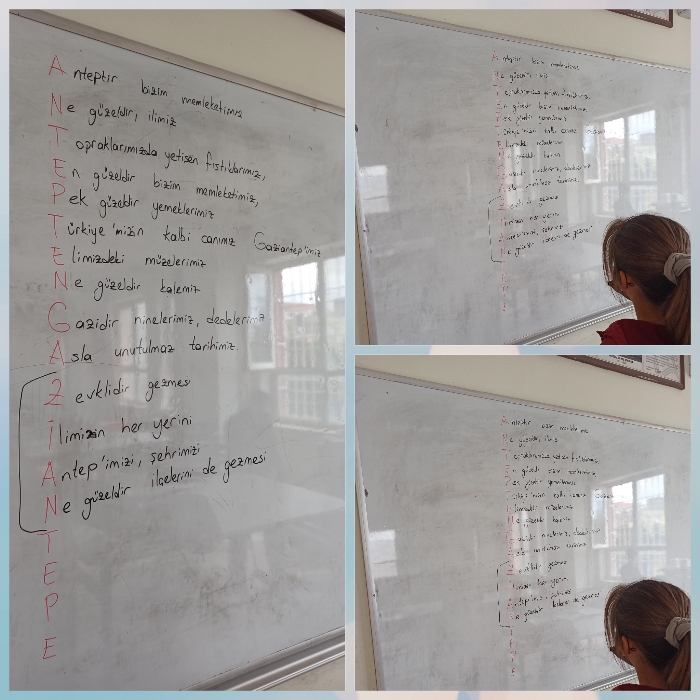 Anteptir bizim memleketimiz
Ne güzeldir, ilimiz
Topraklarımızda yetişen fıstıklarımız,
En güzeldir bizim memleketimiz,
Pek güzeldir yemeklerimiz
Türkiye'mizin kalbi canımız Gaziantep'imiz
Elimizdeki müzelerimiz
Ne güzeldir kalemiz
Gazidir ninelerimiz, dedelerimiz
Asla unutulmaz tarihimiz.
Zevklidir gezmesi
İlimizin her yerini
Antep'imizi, şehrimizi
Ne güzeldir ilçelerini de gezmesi
T
E
P
E